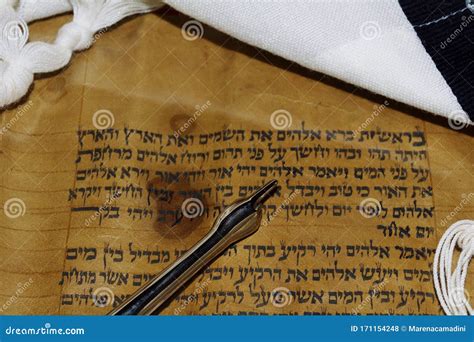 בראשית ברא אלהים את השמים ואת הארץ והארץ
היתה תהו ובהו וחשך על פני תהום ורוח אלהים מרחפת
על פני המים ויאמר אלהים יהי אור ויהי אור וירא אלהים
את האור כי טוב ויבדל בין החשך ויקרא
אלהים יום ולחשך ערב ויהי בק
יום אחד
ויאמר אלהים יהי רקיע בתוך מבדיל בין מים
למים ויעש אלהים את הרקיע ויבדל אשר מתחת
ובין המים אשר
dreamstime.com
ID 171154248 © Marenacamadini